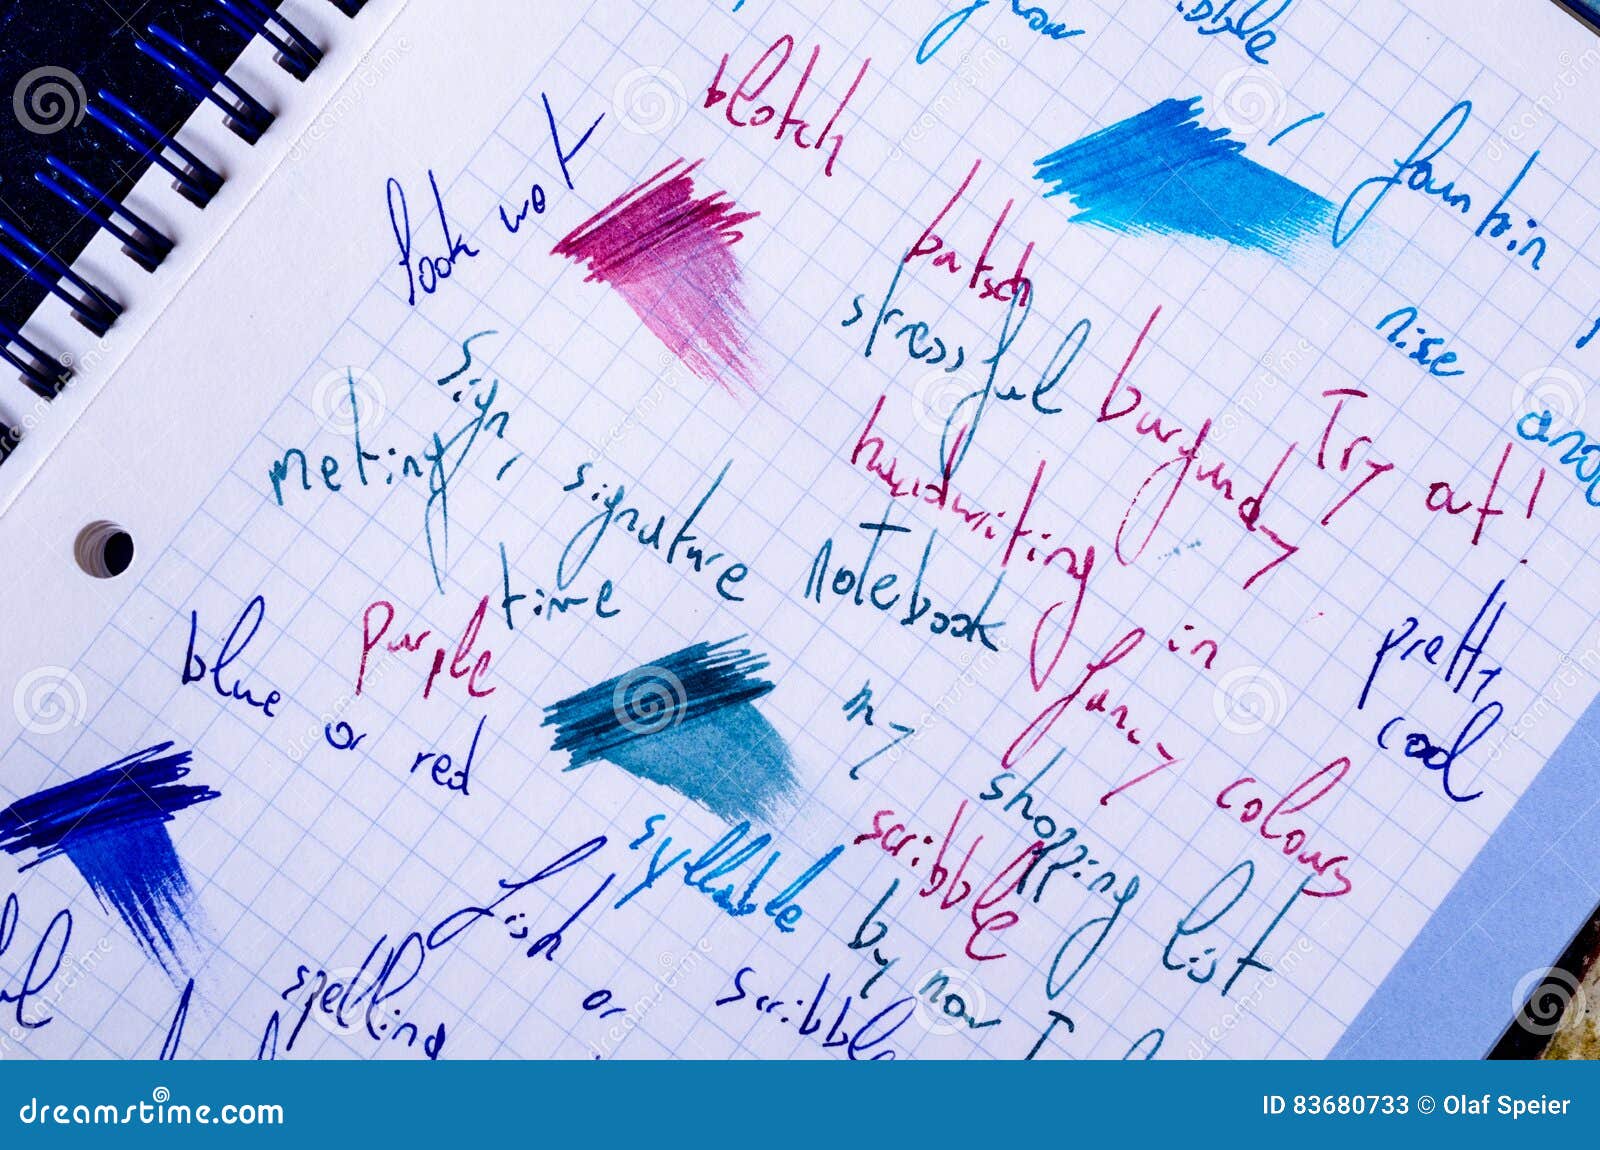 blotch
look wot
fountain
batsch
stressful burgundy Try out!
rise
sign,
meting signature notebook
handwriting in fancy colours
time
purple
blue or red
pretty
cool
my shopping list
syllable scribble
fish
by now I
spelling or scribble
dreamstime.com
ID 83680733 © Olaf Speier